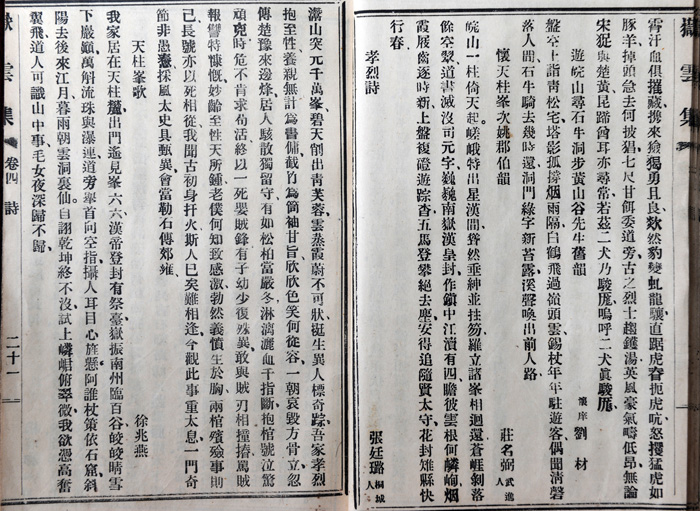 霄汗血俱摧藏攙來瘦猲勇且良歘然豹變虬龍驤直踞虎脊扼虎吭怒攫猛虎如
豚羊掉頭急去何披猖七尺甘餌委道旁古之烈士趨鑊湯英風豪氣疇低昂無論
宋㹱與楚黃昆蹄曾耳亦尋常若茲二犬乃駿厖嗚呼二犬眞駿厖
遊皖山尋石牛洞步黃山谷先生舊韻
懷庠 劉材
盤空上詣靑松宅塔影孤撐烟雨隔白鶴飛過嶺頭雲錫杖年年駐遊客偶聞淸磬
落人間石牛騎去幾時還洞門綠字新苔露溪聲喚出前人路
懷天柱峯次姚郡伯韻
莊名弼 武進人
皖山一柱倚天起嵯峨特出星漢間聳然垂紳並拄笏羅立諸峯相迴還蒼崖剝落
餘空翠道書滅沒司元字巍巍南嶽漢皇封作鎭中江瀆有四瞻彼雲根何嶙峋烟
霞展齒逐時新上盤複磴遊踪杳五馬登攀絕去塵安得追隨賢太守花封雉縣快
行春
孝烈詩
張廷璐 桐城人
灊山突元千萬峯碧天削出靑芙蓉雲蒸霞蔚不可狀挺生異人標奇踪吾家孝烈
抱至性養親無計爲書傭截竹爲筒袖甘旨欣欣色笑何從容一朝哀毀方骨立忽
傳楚豫來邊烽居人駭散獨留守有如松柏當嚴冬淋漓灑血千指斷抱棺號泣驚
頑兇時危不肯求苟活終以一死嬰賊鋒有子幼少復殊異敢與賊刃相撞摏罵賊
報讐特慷慨妙齡至性天所鍾老僕何知致感激勃然義憤生於胸兩棺殯殮事則
己長號亦以死相從我聞古初身扞火斯人已矣難相逢今觀此事重太息一門奇
節非愚惷採風太史具甄異會當勒石傳郊雍
天柱峯歌
徐兆燕
我家居在天柱麓出門遙見峯六六漢帝登封有祭臺嶽振南州臨百谷皎皎晴雪
下嚴巔萬斛流珠與瀑連道旁舉首向空指攝人耳目心旌懸阿誰杖策依石窟斜
陽去後來江月暮雨朝雲洞裏仙自詡乾坤終不沒試上嶙峋俯翠微我欲憑高奮
翼飛道人可識山中事毛女夜深歸不歸
嶽雲集
卷四 詩
二十一